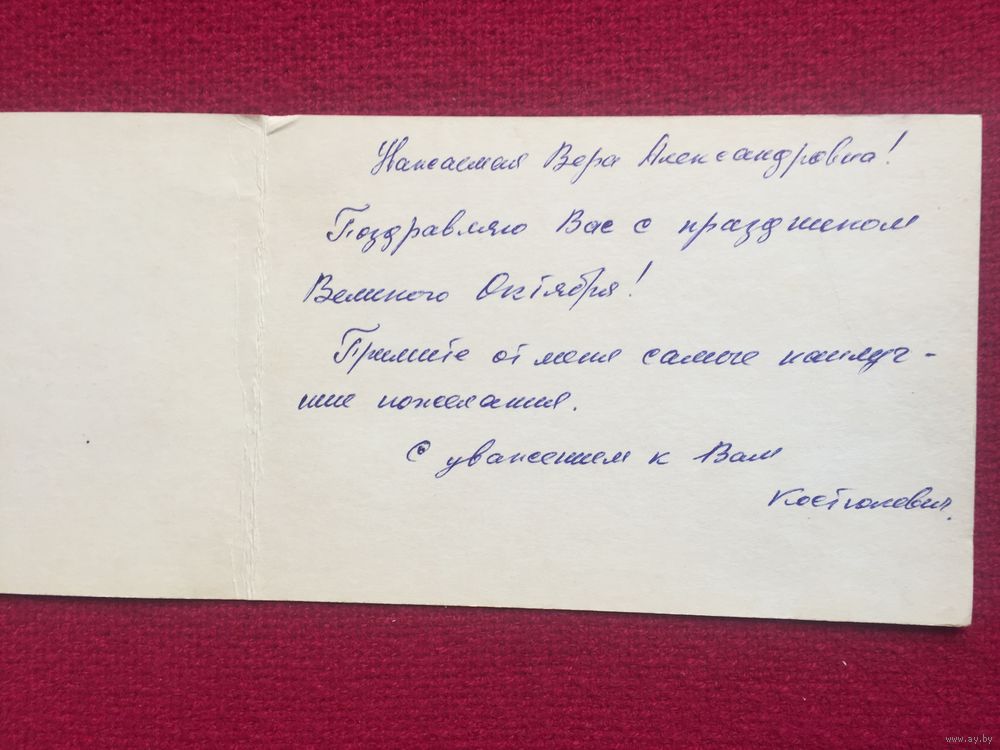 Уважаемая Вера Александровна!
Поздравляю Вас с праздником
Великого Октября!
Примите от меня самые наилуч-
шие пожелания.
С уважением к Вам
www.ay.by